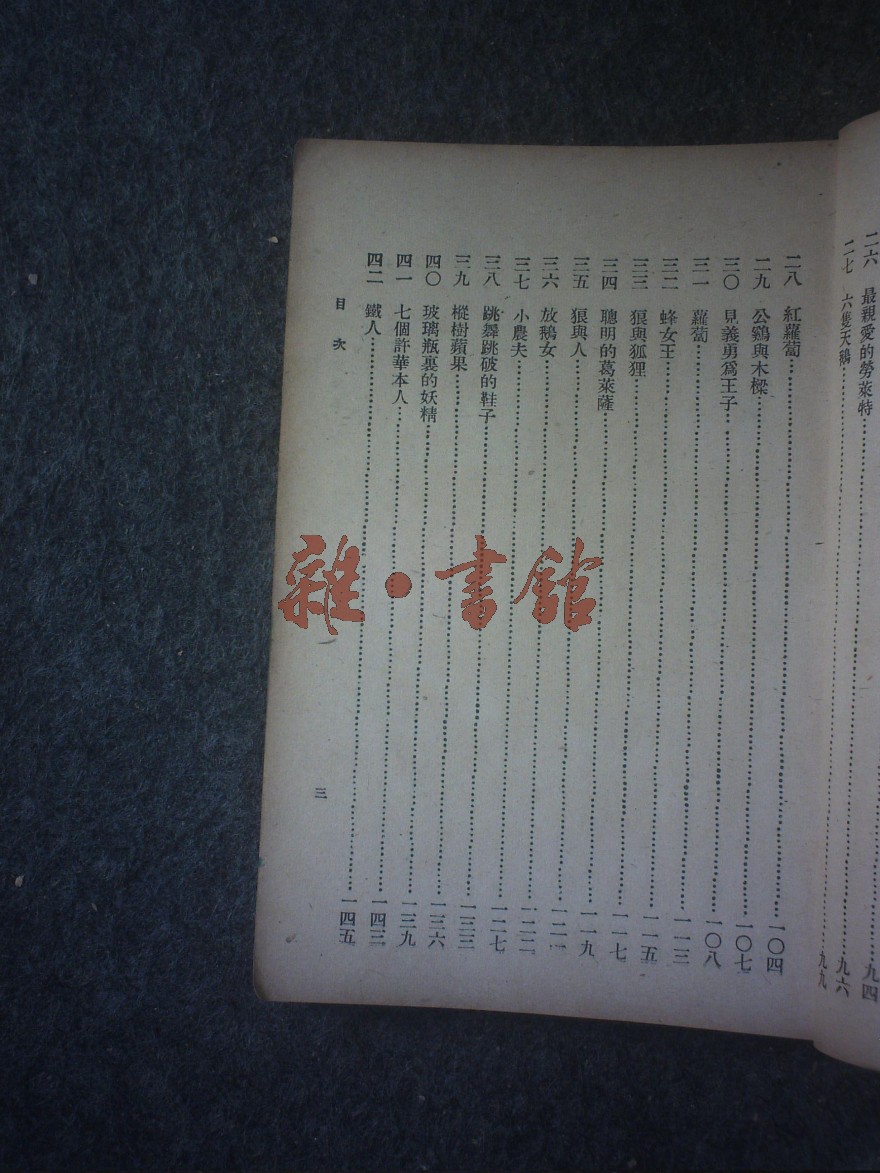 九四
二六 最親愛的勞萊特……九六
二七 六隻天鵝……九九
二八 紅蘿蔔……一〇四
二九 公鷄與木樑……一〇七
三〇 見義勇爲王子……一〇八
三一 蘿蔔……一一三
三二 蜂女王……一一五
三三 狼與狐狸……一一七
三四 聰明的葛萊薩……一一九
三五 狼與人……一二一
三六 放鵝女……一二二
三七 小農夫……一二七
三八 跳舞跳破的鞋子……一三三
三九 樅樹蘋果……一三六
四〇 玻璃瓶裏的妖精……一三九
四一 七個許華本人……一四三
四二 鐵人……一四五
目次
三
雜·書館